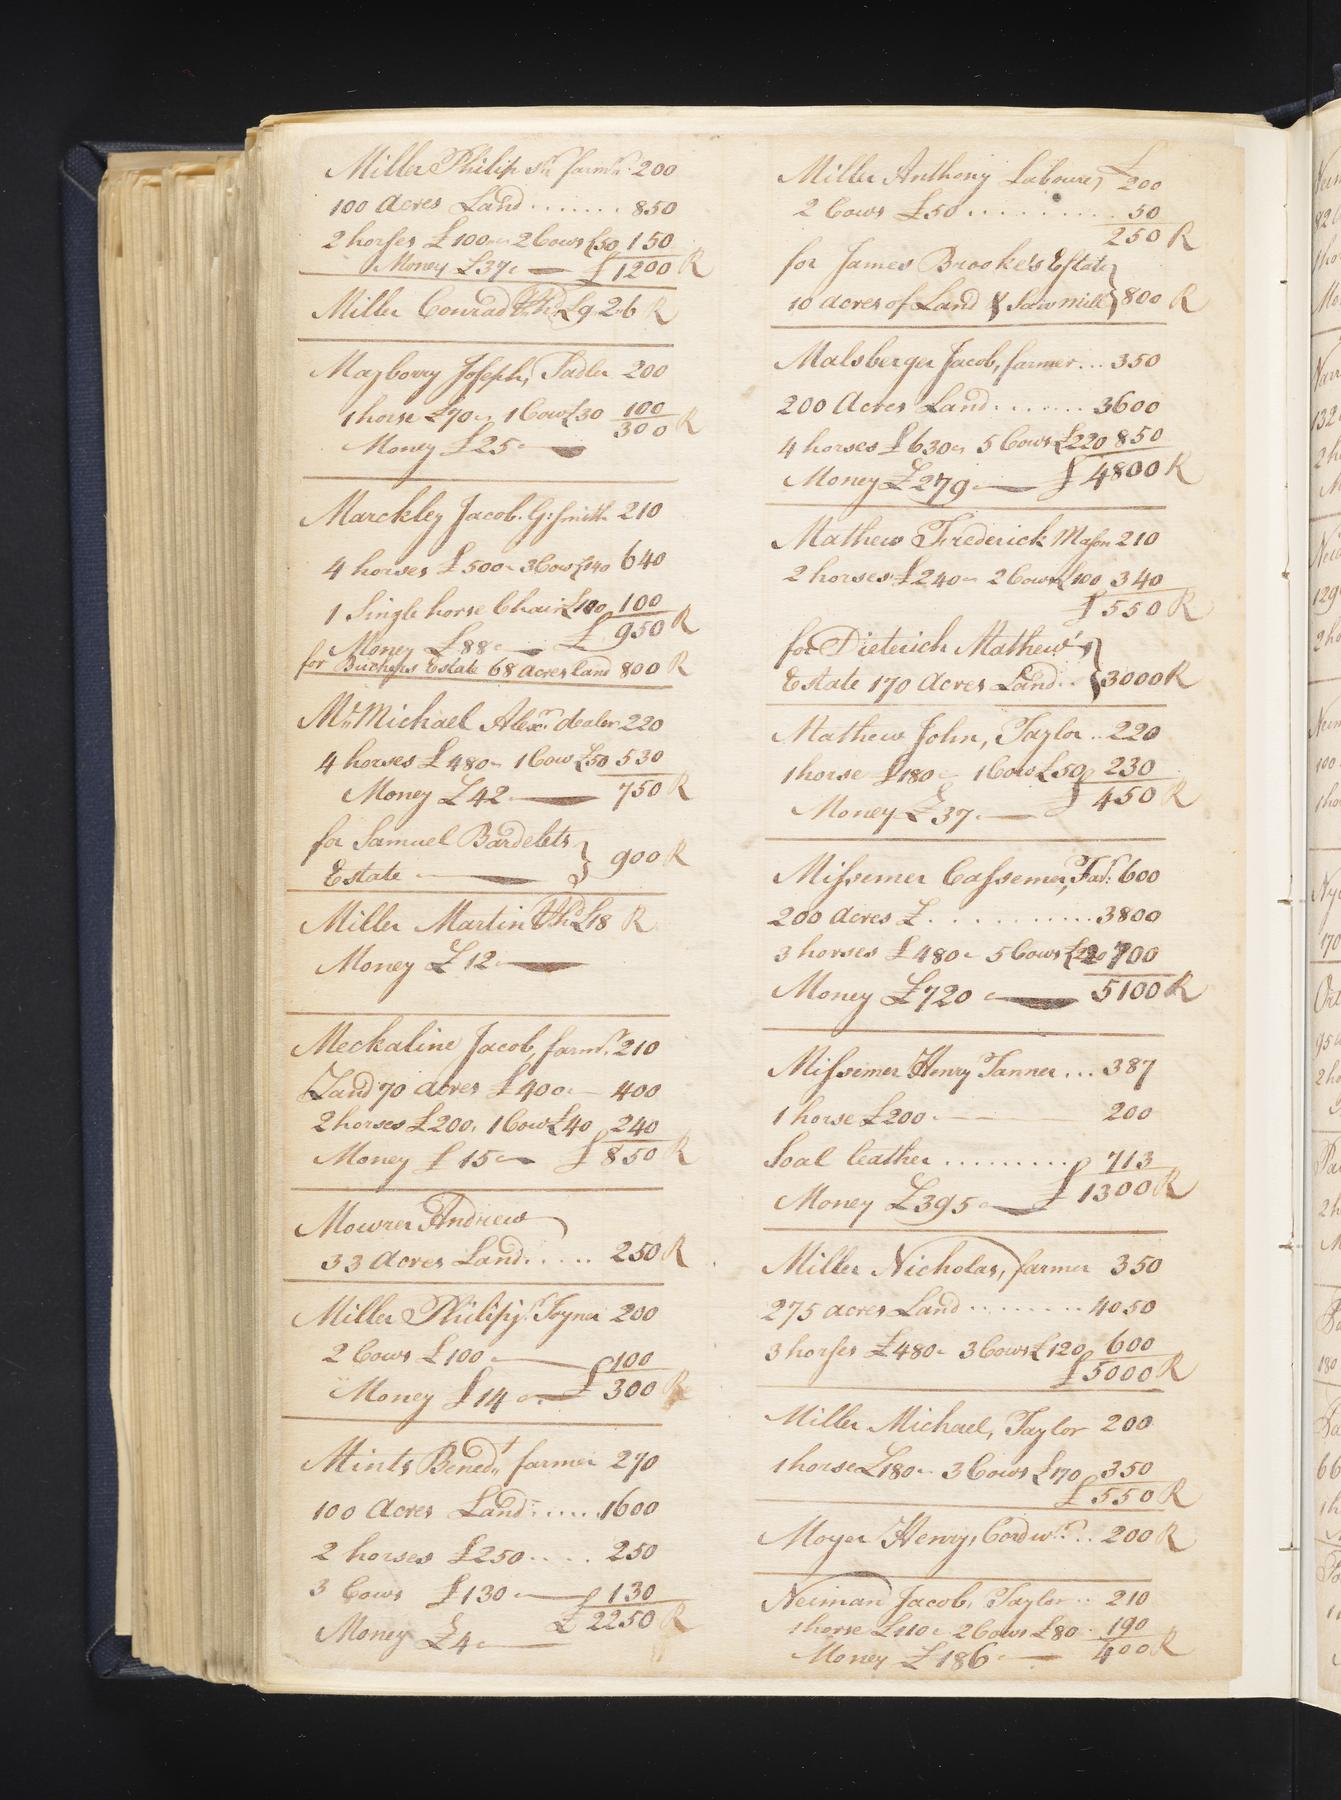 Miller Philip Sr. farmr. 200
100 Acres Land ........ 850
2 horses £100 " 2 Cows £50 150
Money £37 " — £ 1200 R
Miller Conrad £9.26 R
Mayborry Joseph, Sadler 200
1 horse £70 " 1 Cow £30 100
300 R
Money £25 " —
Marckley Jacob. G: Smith 210
4 horses £500 " 3 Cows £140 640
1 Single horse Chair £100 100
£ 950 R
Money £88 " —
for Estate 68 acres land 800 R
Mc.Michael Alexr. dealer 220
4 horses £480 " 1 Cow £50 530
Money £42 — 750 R
for Samuel Bardelets
Estate — } 900 R
Miller Martin £18 R
Money £12 —
Meckaline Jacob, farmr. 210
Land 70 acres £400 " — 400
2 horses £200, 1 Cow £40 240
Money £15 " — £ 850 R
Mowrer Andrew
33 Acres Land ...... 250 R
Miller Philip jr. Joyner 200
2 Cows £100 " — 100
Money £14 " — £ 300 R
Mints Benedt. farmer 270
100 Acres Land ...... 1600
2 horses £250 .... 250
3 Cows £130 " — 130
£ 2250 R
Money £4 " —
Miller Anthony Labourer £200
2 Cows £50 .......... 50
250 R
for James Brooke's Estate
10 acres of Land & Sawmill } 800 R
Malsberger Jacob, farmer ... 350
200 Acres Land ....... 3600
4 horses £630 " 5 Cows £220 850
Money £279 " — £ 4800 R
Mathew Frederick Mason 210
2 horses £240 " 2 Cows £100 340
£ 550 R
for Dieterich Mathew's
Estate 170 Acres Land .. } 3000 R
Mathew John, Taylor .. 220
1 horse £180 " 1 Cow £50 230
£ 450 R
Money £37 " —
Missemer Cassemer, Far: 600
200 acres £ ........... 3800
3 horses £480 " 5 Cows £220 700
Money £720 " — 5100 R
Missemer Henry Tanner ... 387
1 horse £200 " — 200
Soal leather .......... 713
Money £395 " — £ 1300 R
Miller Nicholas, farmer 350
275 acres Land ......... 4050
3 horses £480 " 3 Cows £120 600
£ 5000 R
Miller Michael, Taylor 200
1 horse £180 " 3 Cows £170 350
£ 550 R
Moyer Henry, Cordwr. .. 200 R
Neiman Jacob, Taylor .. 210
1 horse £110 " 2 Cows £80 . 190
Money £186 " — 400 R